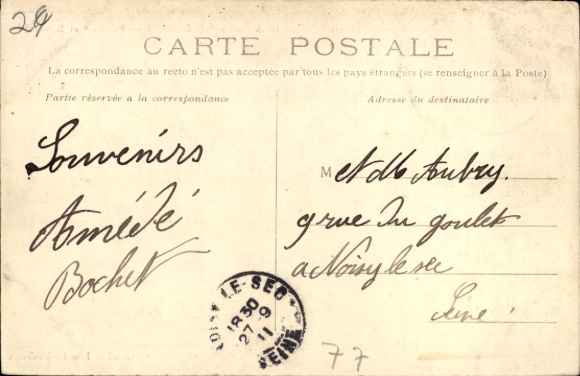 29
CARTE POSTALE
La correspondance au recto n'est pas acceptée par tous les pays étrangers (se renseigner à la Poste)
Partie réservée a la correspondance
Adresse du destinataire
Souvenirs
Amédé
Bochet
M et Me Aubry
9 rue du goulet
a Noisy le sec
Seine
LE-SEC
18 30
27 - 9
11
SEINE
77